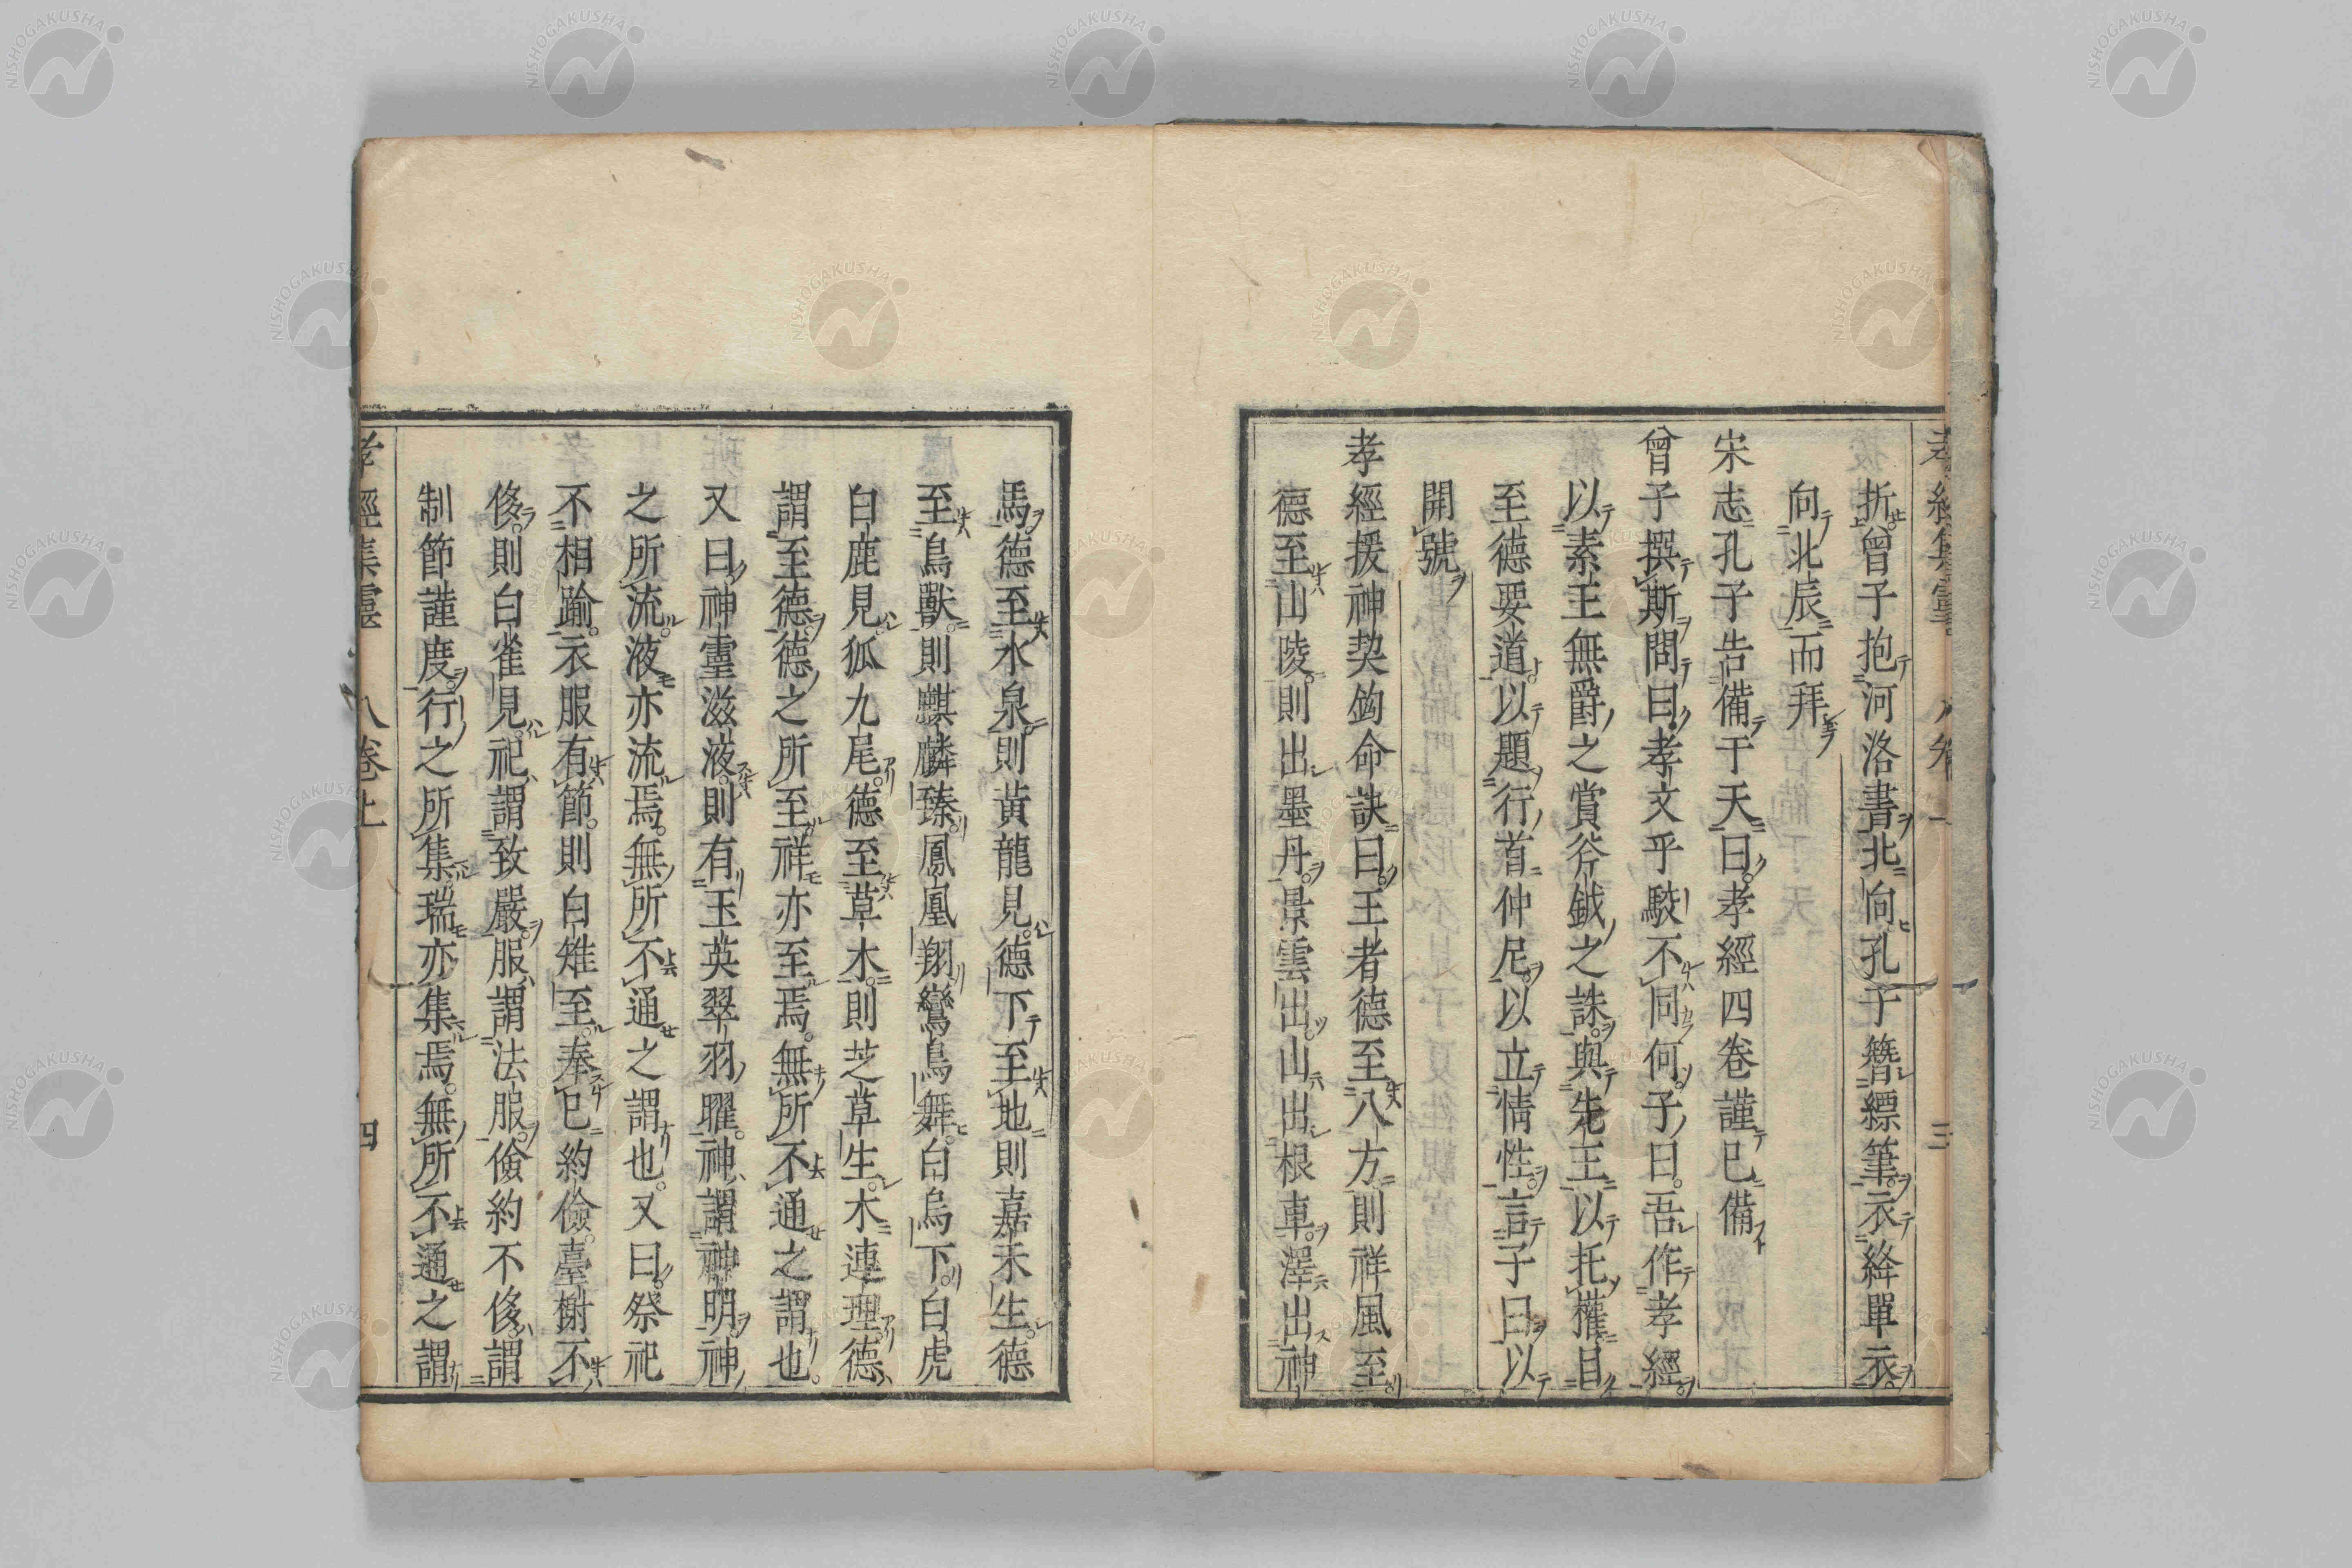 折曾子抱河洛書北向孔子簪縹筆衣絳單衣
向北辰而拜
宋志孔子告備于天曰孝經四卷謹已備
曾子撰斯問曰孝文乎駮不同何子曰吾作孝經
以素王無爵之賞斧鉞之誅與先王以托權目
至德要道以題行首仲尼以立情性言子曰以
開號
孝經援神契鉤命訣曰王者德至八方則祥風至
德至山陵則出墨丹景雲出山出根車澤出神
馬德至水泉則黃龍見德下至地則嘉禾生德
至鳥獸則麒麟臻鳳凰翔鸞鳥舞白烏下白虎
白鹿見狐九尾德至草木則芝草生木連理德
謂至德德之所至祥亦至焉無所不通之謂也
又曰神靈滋液則有玉英翠羽曜神謂神明神
之所流液亦流焉無所不通之謂也又曰祭祀
不相踰衣服有節則白雉至奉已約儉臺榭不
侈則白雀見祀謂致嚴服謂法服儉約不侈謂
制節謹度行之所集瑞亦集焉無所不通之謂
孝經集靈 卷上 四
NISHOGAKUSHA